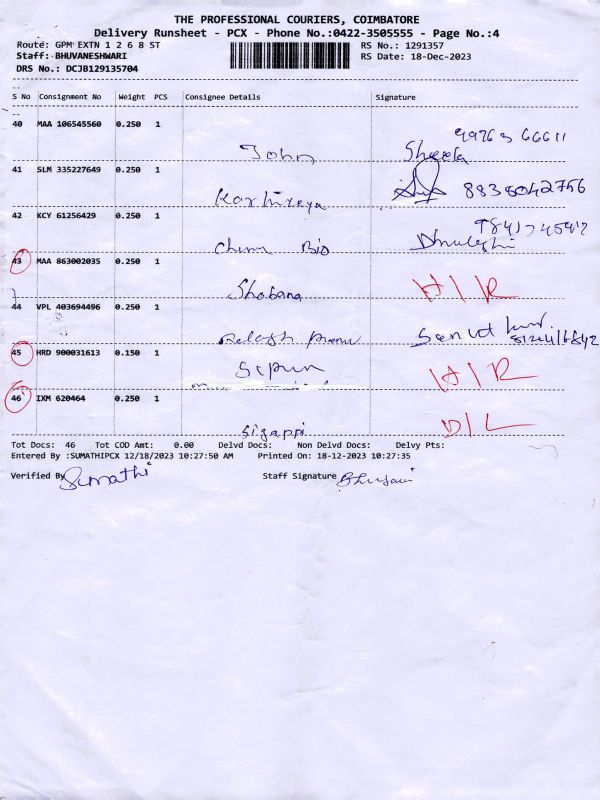 THE PROFESSIONAL COURIERS, COIMBATORE
Delivery Runsheet - PCX - Phone No.:0422-3505555 - Page No.:4
Route: GPM EXTN 1 2 6 8 ST RS No.: 1291357
Staff: BHUVANESHWARI RS Date: 18-Dec-2023
DRS No.: DCJB129135704
S No Consignment No Weight PCS Consignee Details Signature
40 MAA 106545560 0.250 1
John Sheela
41 SLM 335227649 0.250 1
8838042756
42 KCY 61256429 0.250 1
Chem Bio
43 MAA 863002035 0.250 1
Shobana H/R
44 VPL 403694496 0.250 1
45 HRD 900031613 0.150 1 Sipun
H/R
46 IXM 620464 0.250 1
Sigappi D/L
Tot Docs: 46 Tot COD Amt: 0.00 Delvd Docs: Non Delvd Docs: Delvy Pts:
Entered By :SUMATHIPCX 12/18/2023 10:27:50 AM Printed On: 18-12-2023 10:27:35
Verified By Sumathi Staff Signature